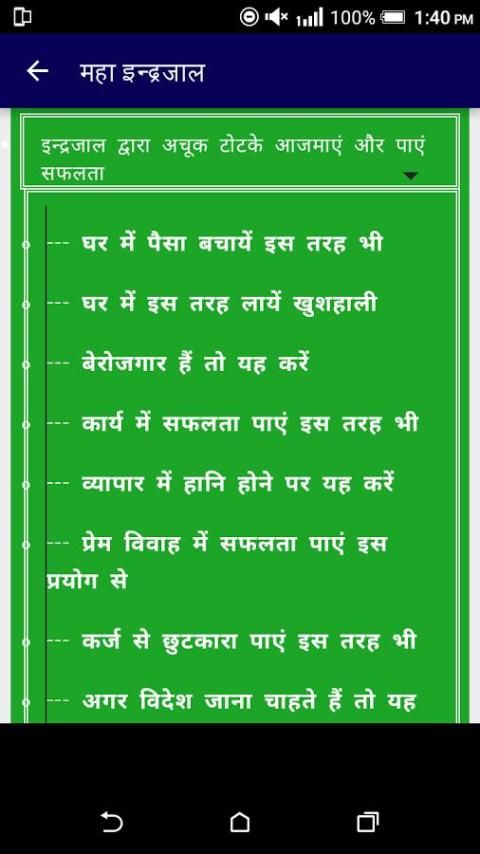 100% 1:40 PM
महा इन्द्रजाल
इन्द्रजाल द्वारा अचूक टोटके आजमाएं और पाएं
सफलता
--- घर में पैसा बचायें इस तरह भी
--- घर में इस तरह लायें खुशहाली
--- बेरोजगार हैं तो यह करें
--- कार्य में सफलता पाएं इस तरह भी
--- व्यापार में हानि होने पर यह करें
--- प्रेम विवाह में सफलता पाएं इस
प्रयोग से
--- कर्ज से छुटकारा पाएं इस तरह भी
--- अगर विदेश जाना चाहते हैं तो यह